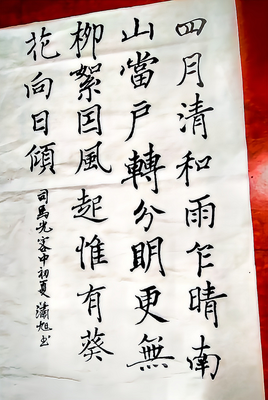 四月清和雨乍晴南
山當戶轉分明更無
柳絮因風起惟有葵
花向日傾
司馬光客中初夏 瀟旭书